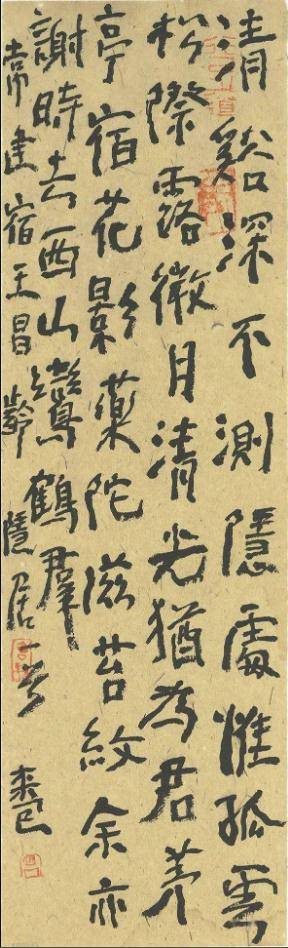 清谿深不測隱處惟孤雲
松際露微月清光猶為君茅
亭宿花影藥院滋苔紋余亦
謝時去西山鸞鶴羣
常建宿王昌齡隱居一首